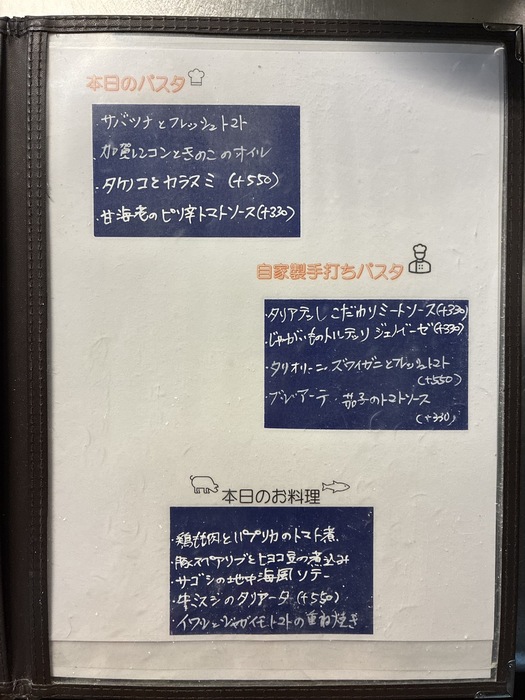 本日のパスタ
・サバツナとフレッシュトマト
・加賀レンコンときのこのオイル
・タケノコとカラスミ (+550)
・甘海老のピリ辛トマトソース(+330)
自家製手打ちパスタ
・タリアテッレ こだわりミートソース(+330)
・じゃがいものトルテッリ ジェノベーゼ(+330)
・タリオリーニ ズワイガニとフレッシュトマト
(+550)
茄子のトマトソース
(+330)
本日のお料理
・鶏もも肉とパプリカのトマト煮
・豚スペアリブとヒヨコ豆の煮込み
・サゴシの地中海風ソテー
・牛ミスジのタリアータ (+550)
・イワシとジャガイモトマトの重ね焼き